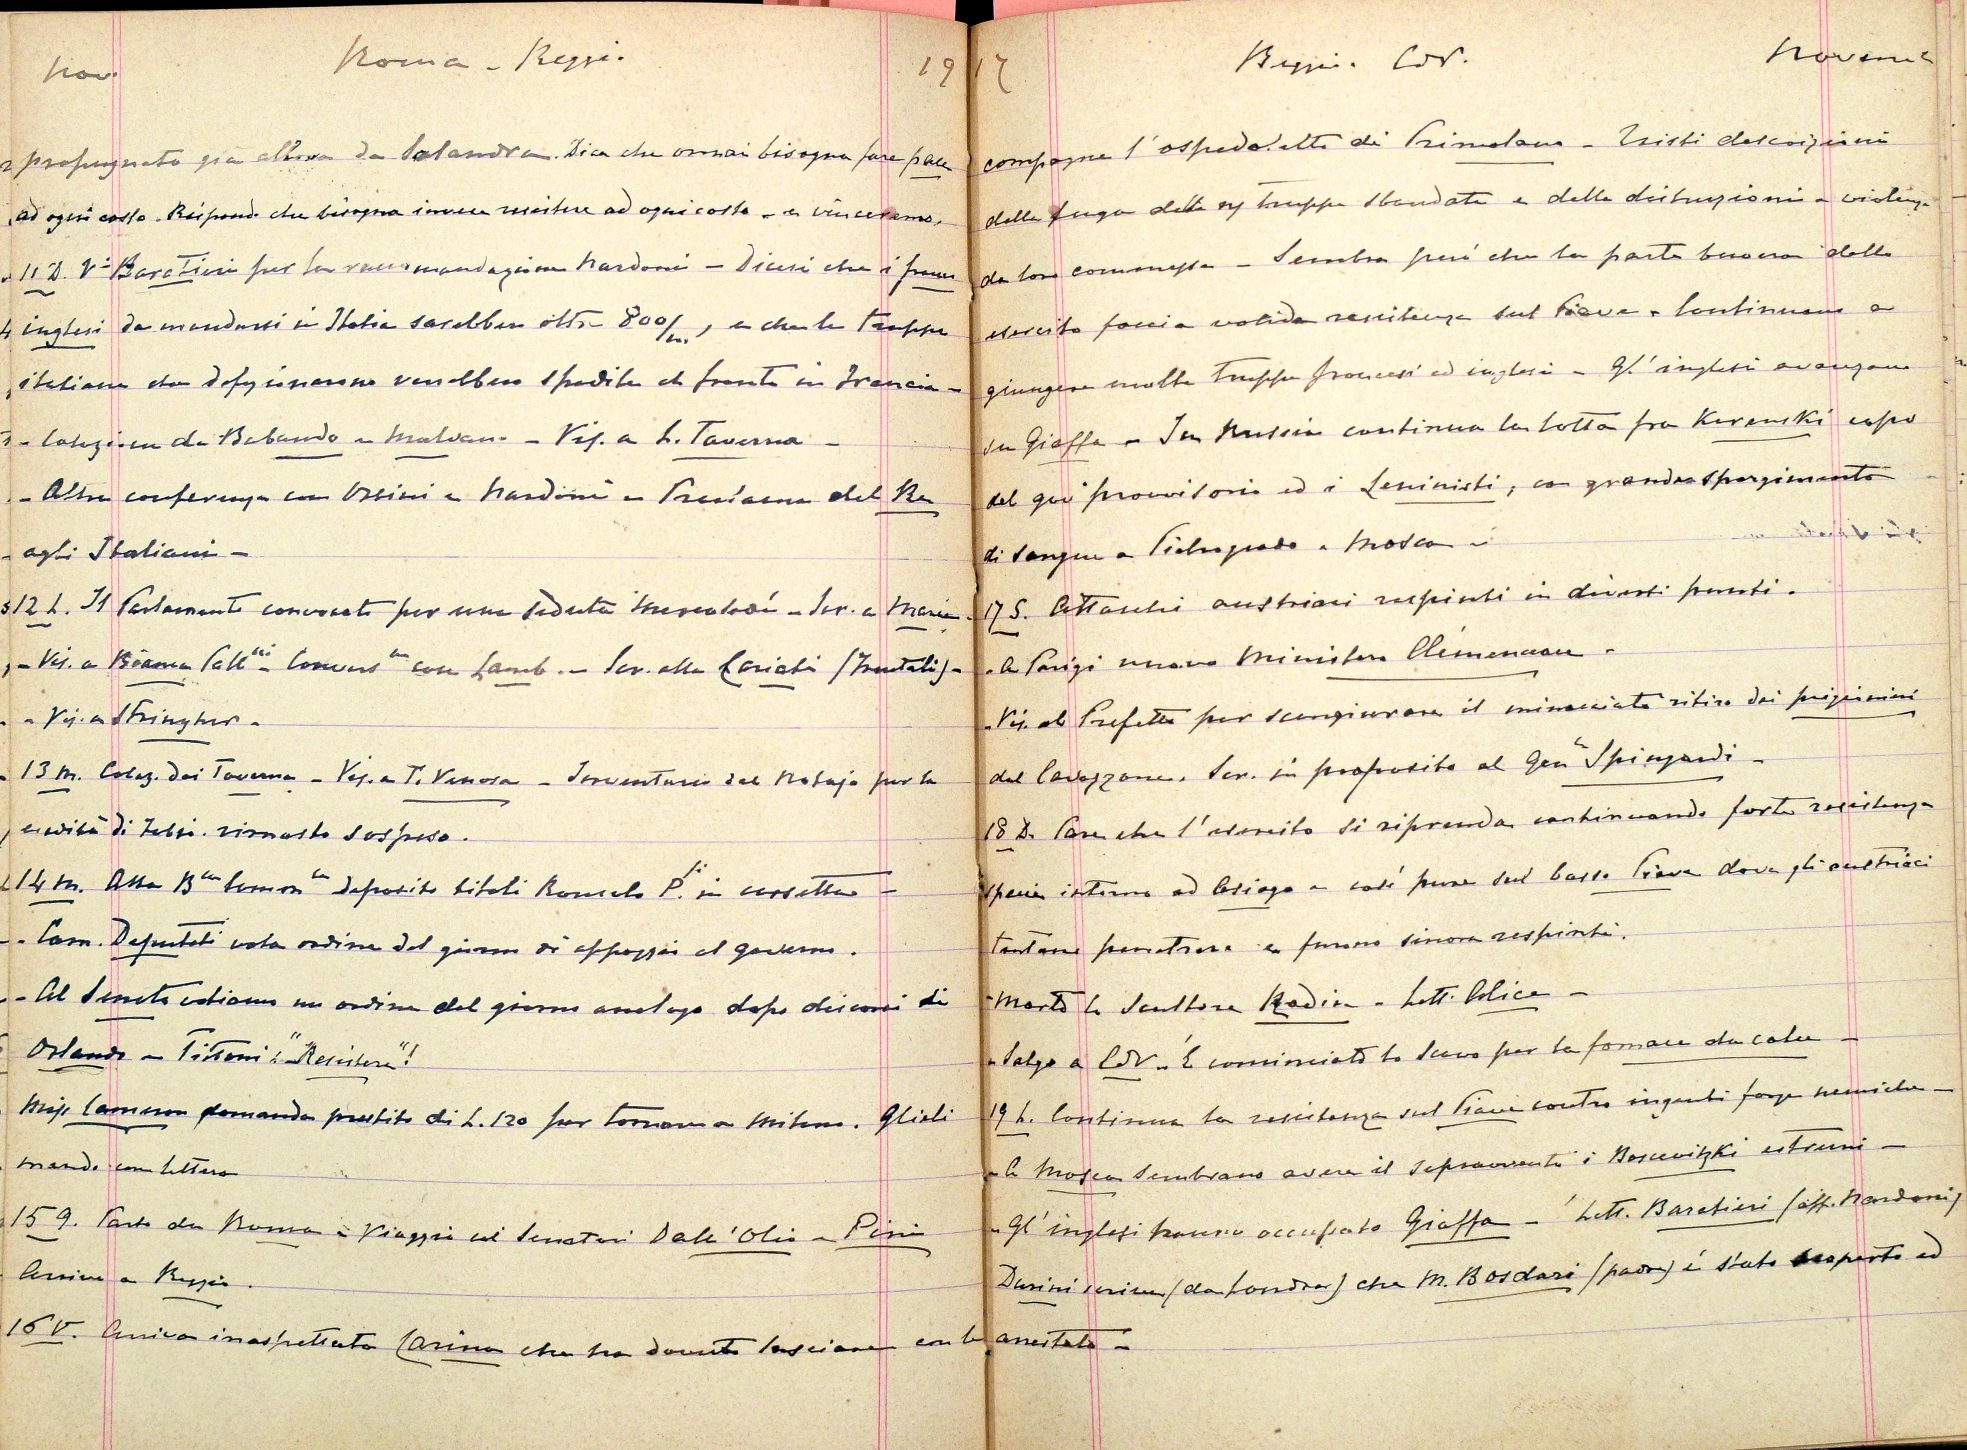 Nov. Roma - Reggio. 19
propugnata già allora da Salandra. Dice che ormai bisogna fare pace
ad ogni costo. Rispondo che bisogna invece resistere ad ogni costo - e vinceremo.
11 D. Va Baratieri per la raccomandazione Nardoni - Dicesi che i francesi
inglesi da mandarsi in Italia sarebbero oltre 800/m, e che le truppe
italiane che defezionarono verrebbero spedite al fronte in Francia -
- Colazione da Bebando e Malvano - Vis. a L. Taverna -
- Altra conferenza con Orsini e Nardoni - Proclama del Re
agli Italiani -
12 L. Il Parlamento convocato per una seduta mercoledì - Scr. a Maria
- Vis. a Pall.ni - Convers.ne con Lamb. - Scr. alla Cariati (Frutteti) -
- Vis. a Stringher -
13 M. Colaz. dai Taverna - Vis. a T. Venosa - Inventario dal Notajo per la
eredità di rimasto sospeso.
14 M. Alla B.ca Comm.le deposito titoli Romolo P. in cassetta -
- Cam. Deputati vota ordine del giorno di appoggio al governo.
- Al Senato votiamo un ordine del giorno analogo dopo discorsi di
Orlando e Tittoni: "Resistere"!
Miss Cameron domanda prestito di L. 120 per tornare a Milano. Glieli
mando con lettera
15 G. Parto da Roma - Viaggio coi Senatori Dall'Olio e Pini
Arrivo a Reggio.
16 V. Arriva inaspettata Carina che ha dovuto lasciare con le
17 Reggio. CdV. Novembre
compagne l'ospedaletto di Primolano - Tristi descrizioni
della fuga delle truppe sbandate e delle distruzioni e violenze
da loro commesse - Sembra però che la parte buona dello
esercito faccia valida resistenza sul Piave - Continuano a
giungere molte truppe francesi ed inglesi - Gl'inglesi avanzano
su Giaffa - In Russia continua la lotta fra Kerenski capo
del gov.o provvisorio ed i Leninisti, con grande spargimento
di sangue a Pietrogrado e Mosca -
17 S. Attacchi austriaci respinti in diversi punti.
- A Parigi nuovo Ministero Clémenceau -
- Vis. al Prefetto per scongiurare il minacciato ritiro dei prigionieri
dal Cavazzone. Scr. in proposito al Gen.le Spingardi -
18 D. Pare che l'esercito si riprenda continuando forte resistenza
specie intorno ad Asiago e così pure sul basso Piave dove gli austriaci
tentano penetrare e furono sinora respinti.
- Morto lo scultore Rodin - Lett. Alice -
- Salgo a CdV - È cominciato lo scavo per la fornace da calce -
19 L. Continua la resistenza sul Piave contro ingenti forze nemiche -
- A Mosca sembrano avere il sopravvento i Boscevitzki estremi -
- Gl'inglesi hanno occupato Giaffa - Lett. Baratieri (aff. Nardoni)
Durini scrive (da Londra) che M. Bosdari (padre) è stato scoperto ed
arrestato -